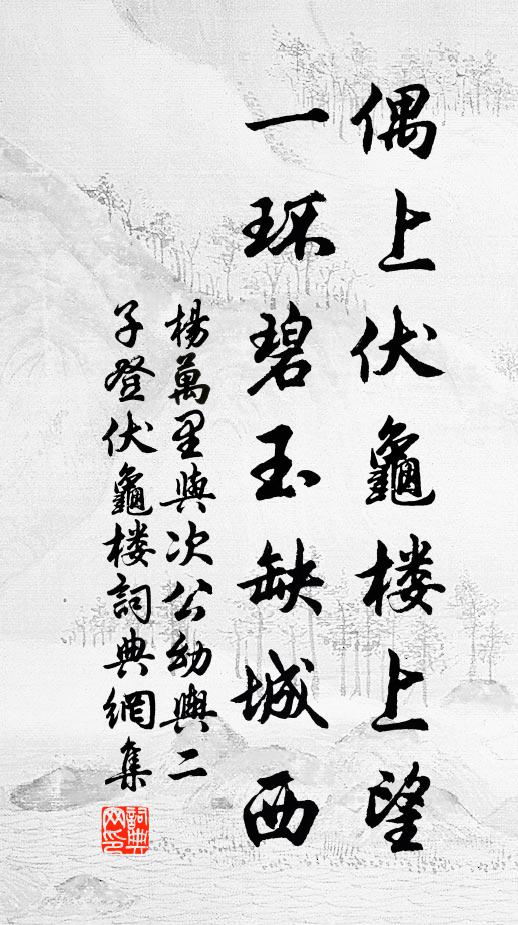 偶上伏龜楼上望
一环碧玉缺城西
楊萬里與次公幼輿二
子登伏龜楼詞典網集
詞典
网印